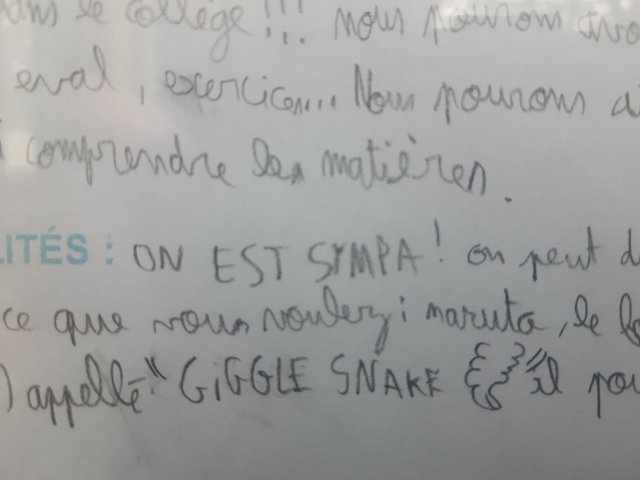 dans le collège !!! nous pourrons
eval, exercices... Nous pourons
comprendre les matières.
LITÉS : ON EST SYMPA! on peut
ce que vous voulez: maruto, le
) appellé "GIGGLE SNAKE " il